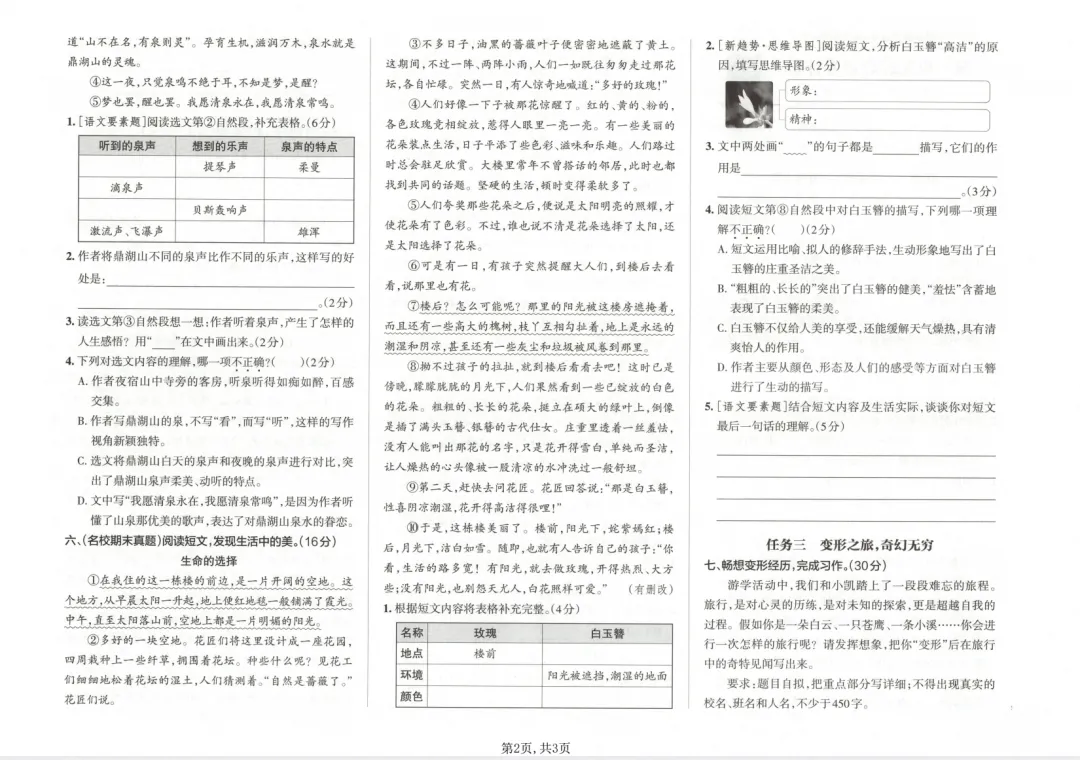 道“山不在名,有泉则灵”。孕育生机,滋润万木,泉水就是
鼎湖山的灵魂。
④这一夜,只觉泉鸣不绝于耳,不知是梦,是醒?
⑤梦也罢,醒也罢。我愿清泉永在,我愿清泉常鸣。
1.[语文要素题]阅读选文第②自然段,补充表格。(6分)
听到的泉声 想到的乐声 泉声的特点
提琴声 柔曼
滴泉声
贝斯轰响声
激流声、飞瀑声 雄浑
2.作者将鼎湖山不同的泉声比作不同的乐声,这样写的好
处是:
。(2分)
3.读选文第③自然段想一想:作者听着泉声,产生了怎样的
人生感悟? 用“____”在文中画出来。(2分)
4.下列对选文内容的理解,哪一项不正确?( )(2分)
A.作者夜宿山中寺旁的客房,听泉听得如痴如醉,百感
交集。
B.作者写鼎湖山的泉,不写“看”,而写“听”,这样的写作
视角新颖独特。
C.选文将鼎湖山白天的泉声和夜晚的泉声进行对比,突
出了鼎湖山泉声柔美、动听的特点。
D.文中写“我愿清泉永在,我愿清泉常鸣”,是因为作者听
懂了山泉那优美的歌声,表达了对鼎湖山泉水的眷恋。
六、(名校期末真题)阅读短文,发现生活中的美。(16分)
生命的选择
①在我住的这一栋楼的前边,是一片开阔的空地。这
个地方,从早晨太阳一升起,地上便红地毯一般铺满了霞光。
中午,直至太阳落山前,空地上都是一片明媚的阳光。
②多好的一块空地。花匠们将这里设计成一座花园,
四周栽种上一些纤草,拥围着花坛。种些什么呢? 见花工
们细细地松着花坛的湿土,人们猜测着。“自然是蔷薇了。”
花匠们说。
③不多日子,油黑的蔷薇叶子便密密地遮蔽了黄土。
这期间,不过一阵、两阵小雨,人们一如既往匆匆走过那花
坛,各自忙碌。突然一日,有人惊奇地喊道:“多好的玫瑰!”
④人们好像一下子被那花惊醒了。红的、黄的、粉的,
各色玫瑰竞相绽放,惹得人眼里一亮一亮。有一些美丽的
花朵装点生活,日子平添了些色彩、滋味和乐趣。人们路过
时总会驻足欣赏。大楼里常年不曾搭话的邻居,此时也都
找到共同的话题。坚硬的生活,顿时变得柔软多了。
⑤人们夸奖那些花朵之后,便说是太阳明亮的照耀,才
使花朵有了色彩。不过,谁也说不清是花朵选择了太阳,还
是太阳选择了花朵。
⑥可是有一日,有孩子突然提醒大人们,到楼后去看
看,说那里也有花。
⑦楼后? 怎么可能呢? 那里的阳光被这楼房遮掩着,
而且还有一些高大的槐树,枝丫互相勾扯着,地上是永远的
潮湿和阴凉,甚至还有一些灰尘和垃圾被风卷到那里。
⑧拗不过孩子的拉扯,就到楼后看看去吧! 这时已是
傍晚,朦朦胧胧的月光下,人们果然看到一些已绽放的白色
的花朵。粗粗的、长长的花朵,挺立在硕大的绿叶上,倒像
是插了满头玉簪、银簪的古代仕女。庄重里透着一丝羞怯,
没有人能叫出那花的名字,只是花开得雪白,单纯而圣洁,
让人燥热的心头像被一股清凉的水冲洗过一般舒坦。
⑨第二天,赶快去问花匠。花匠回答说:“那是白玉簪,
性喜阴凉潮湿,花开得高洁得很哩!”
⑩于是,这栋楼美丽了。楼前,阳光下,姹紫嫣红;楼
后,月光下,洁白如雪。随即,也就有人告诉自己的孩子:“你
看,生活的路多宽! 有阳光,就去做玫瑰,开得热烈、大方
些;没有阳光,也别怨天尤人,白花照样可爱。” (有删改)
1.根据短文内容将表格补充完整。(4分)
名称 玫瑰 白玉簪
地点 楼前
环境 阳光被遮挡,潮湿的地面
颜色
2.[新趋势·思维导图]阅读短文,分析白玉簪“高洁”的原
因,填写思维导图。(2分)
形象:
精神:
3.文中两处画“﹏﹏”的句子都是______描写,它们的作
用是
。(3分)
4.阅读短文第⑧自然段中对白玉簪的描写,下列哪一项理
解不正确?( )(2分)
A.短文运用比喻、拟人的修辞手法,生动形象地写出了白
玉簪的庄重圣洁之美。
B.“粗粗的、长长的”突出了白玉簪的健美,“羞怯”含蓄地
表现了白玉簪的柔美。
C.白玉簪不仅给人美的享受,还能缓解天气燥热,具有清
爽怡人的作用。
D.作者主要从颜色、形态及人们的感受等方面对白玉簪
进行了生动的描写。
5.[语文要素题]结合短文内容及生活实际,谈谈你对短文
最后一句话的理解。(5分)
任务三 变形之旅,奇幻无穷
七、畅想变形经历,完成习作。(30分)
游学活动中,我们和小凯踏上了一段段难忘的旅程。
旅行,是对心灵的历练,是对未知的探索,更是超越自我的
过程。假如你是一朵白云、一只苍鹰、一条小溪……你会进
行一次怎样的旅行呢? 请发挥想象,把你“变形”后在旅行
中的奇特见闻写出来。
要求:题目自拟,把重点部分写详细;不得出现真实的
校名、班名和人名,不少于450字。
第2页,共3页